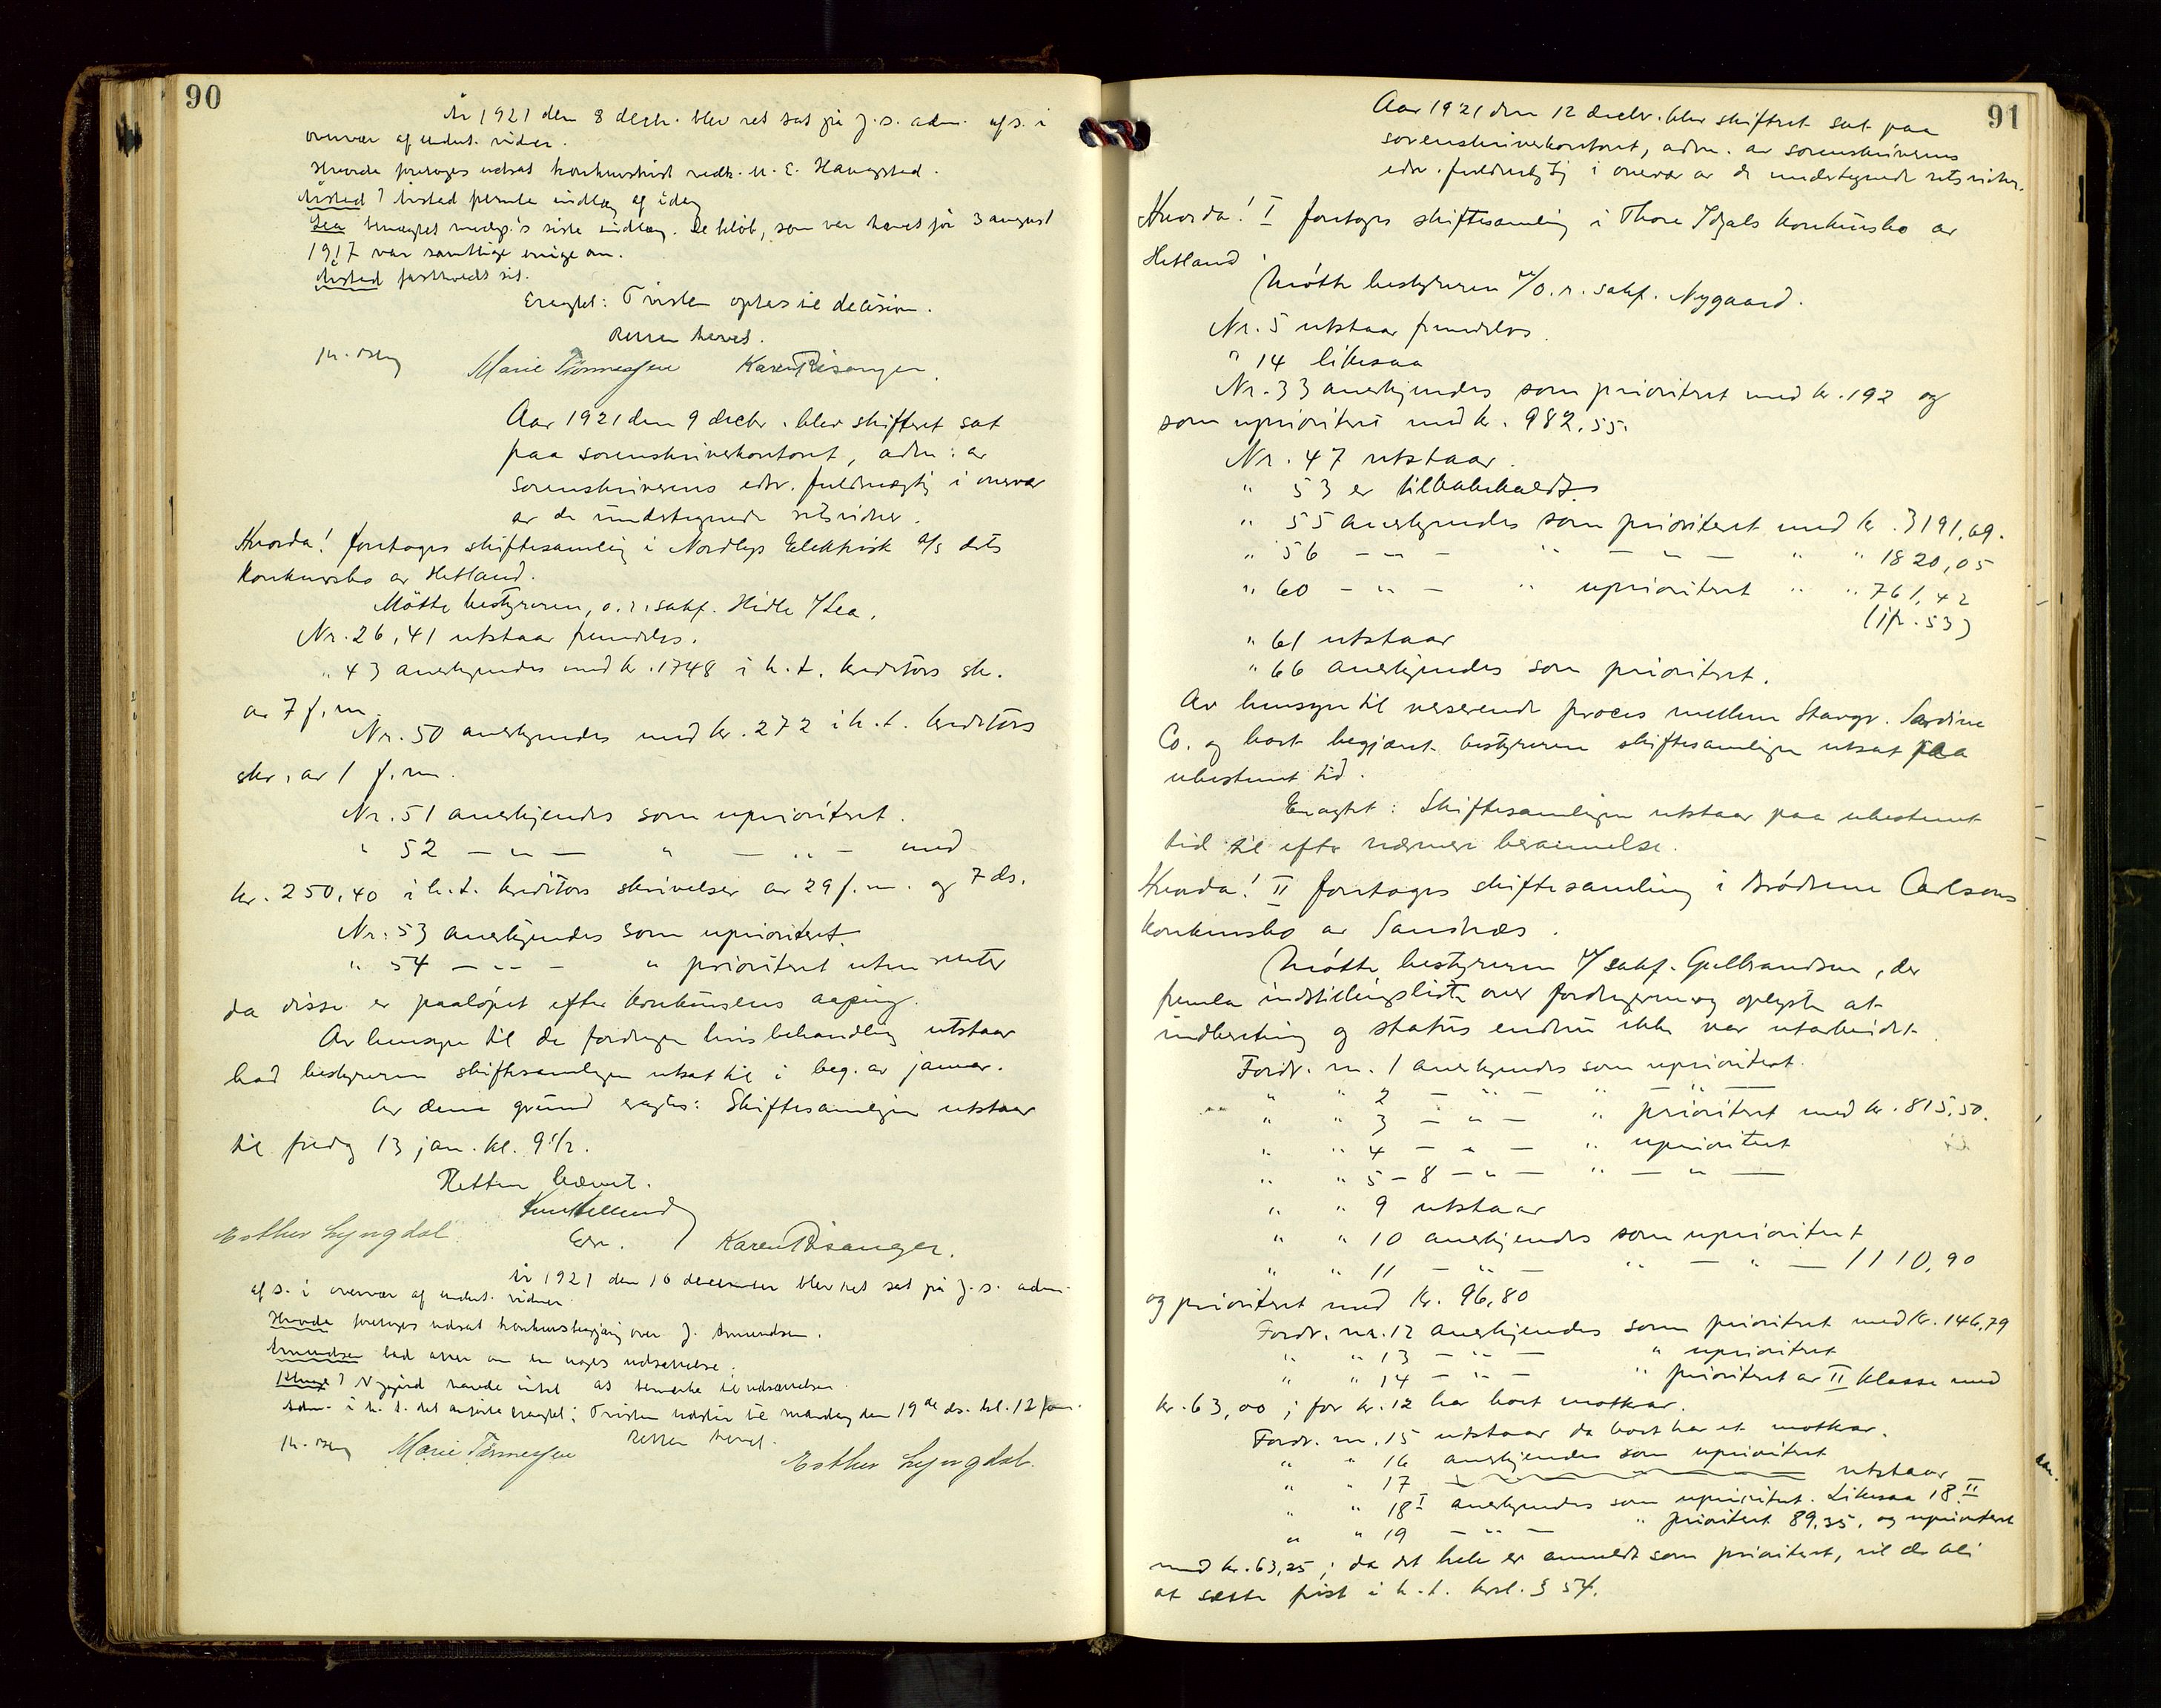 90
År 1921 den 8 decbr. blev ret sat på j. s. adm. af s. i
overvær af undert. vidner.
Hvorda foretoges udsat konkurstvist vedk. M. E. Haugsted.
Årstad? Årstad fremla indlæg af idag
Lea benægtet modp's siste indlæg. De beløb, som var hævet før 3 august
1917 var samtlige enige om.
Årstad fastholdt sit.
Eragtet: Tvisten optas til decision.
Retten hævet.
Marie Tönnessen Karen Risanger.
Aar 1921 den 9 decbr. blev skifteret sat
paa sorenskriverkontoret, adm. av
sorenskriverens edsv. fuldmægtig i overvær
av de undertegnede retsvidner.
Hvorda! foretoges skiftesamling i Nordlys Elektrisk A/S dets
konkursbo av Hetland.
Møtte bestyreren, o.r.sakf. Hidle v/Lea.
Nr. 26, 41 utstaar fremdeles.
" 43 anerkjendes med kr. 1748 i h. t. kreditors skr.
av 7 f.m.
Nr. 50 anerkjendes med kr. 272 i h. t. kreditors
skr. av 1 f.m.
Nr. 51 anerkjendes som uprioritert.
" 52 — " — " — " — med
kr. 250,40 i h. t. kreditors skrivelser av 29 f.m. og 7 ds.
Nr. 53 anerkjendes som uprioritert.
" 54 — " — " prioritert uten renter
da disse er paaløpet efter konkursens aapning.
Av hensyn til de fordringer hvis behandling utstaar
bad bestyreren skiftesamlingen utsat til i beg. av januar.
Av denne grund eragtes: Skiftesamlingen utstaar
til fredag 13 jan. kl. 9 1/2.
Retten hævet.
Esther Lyngdal.
Edsv. Karen Risanger.
År 1921 den 16 december blev ret sat på j. s. adm.
af s. i overvær af undert. vidner.
Hvorda foretoges udsat konkursbegjæring over J. Amundsen.
Amundsen bad atter om en uges udsættelse.
Nygård havde intet at bemerke til udsættelsen.
Adm. i h. t. det anførte eragtet: Tvisten udstår til mandag den 19de ds. kl. 12 form.
Retten hævet.
Marie Tönnessen Esther Lyngdal.
91
Aar 1921 den 12 decbr. blev skifteret sat paa
sorenskriverkontoret, adm. av sorenskriverens
edsv. fuldmægtig i overvær av de undertegnede retsvidner.
Hvorda! I foretoges skiftesamling i Thore Idsals konkursbo av
Hetland.
Møtte bestyreren v/o.r.sakf. Nygaard.
Nr. 5 utstaar fremdeles.
" 14 likesaa
Nr. 33 anerkjendes som prioritert med kr. 192 og
som uprioritert med kr. 982,55.
Nr. 47 utstaar.
" 53 er tilbakekaldt.
" 55 anerkjendes som prioritert med kr. 3191,69.
" 56 — " — " — " — " " 1820,05
" 60 — " — " uprioritert " " 761,42
(jfr. 53)
" 61 utstaar
" 66 anerkjendes som prioritert.
Av hensyn til verserende proces mellem Stavgr. Sardine
Co. og boet begjæret bestyreren skiftesamlingen utsat paa
ubestemt tid.
Eragtet: Skiftesamlingen utstaar paa ubestemt
tid til efter nærmere berammelse.
Hvorda! II foretoges skiftesamling i Brødrene Carlsens
konkursbo av Sandnæs.
Møtte bestyreren v/sakf. Gulbrandsen, der
fremla indstillingsliste over fordringerne og oplyste at
indberetning og status endnu ikke var utarbeidet.
Fordr. nr. 1 anerkjendes som uprioritert.
" " 2 — " — " — " —
" " 3 — " — " prioritert med kr. 815,50.
" " 4 — " — " uprioritert
" " 5 – 8 — " — " — " —
" " 9 utstaar
" " 10 anerkjendes som uprioritert
" " 11 — " — " — " — 1110,90
og prioritert med kr. 96,80
Fordr. nr. 12 anerkjendes som prioritert med kr. 146,79
" " 13 — " — " uprioritert
" " 14 — " — " prioritert av II klasse med
kr. 63,00; for kr. 12 har boet motkrav.
Fordr. nr. 15 utstaar da boet har et motkrav.
" " 16 anerkjendes som uprioritert
" " 17 utstaar
" " 18 I anerkjendes som uprioritert. Likesaa 18 II
" " 19 — " — " prioritert 89,35, og uprioritert
med kr. 63,25; da det hele er anmeldt som prioritert, vil der bli
at sætte frist i h. t. krsl. § 54.